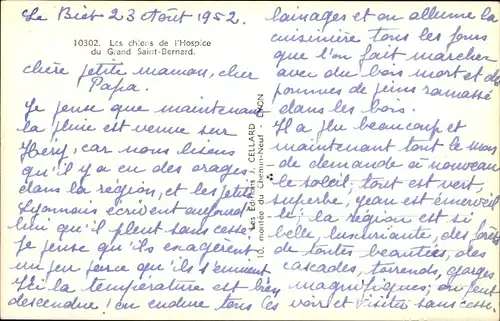 Le Biot - 23 Août 1952.
10302. Les chiens de l'Hospice
du Grand Saint-Bernard.
chère petite maman, cher
Papa.
Je pense que maintenant
la pluie est venue sur
Héry, car nous lisons
qu'il y a eu des orages
dans la région, et les petits
Lyonnais écrivent aujourd'
hui qu'il pleut sans cesse.
Je pense qu'ils exagèrent
un peu parce qu'ils s'ennuient
Ici la température est bien
descendue ! on endure tous les
Les Editions J. CELLARD - LYON
10, montée du Chemin-Neuf
lainages et on allume la
cuisinière tous les jours
que l'on fait marcher
avec du bois mort et des
pommes de pins ramassé
dans les bois.
Il a plu beaucoup et
maintenant tout le monde
demande à nouveau
le soleil; tout est vert,
superbe, Jean est émerveil
lé; la région est si
belle, luxuriante, des forêts
de toutes beautées, des
cascades, torrents, gorges
magnifiques; on peut
voir et visiter sans cesse,